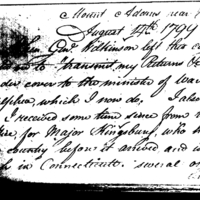 Mount Adams near
August 4th 1794
When Genl Wilkinson left this
to transmit my Returns
der cover to the minister of War
office, which I now do. I also
I received some time since from
for Major Kingsbury, who
County before it arrived and is
in Connecticute. several